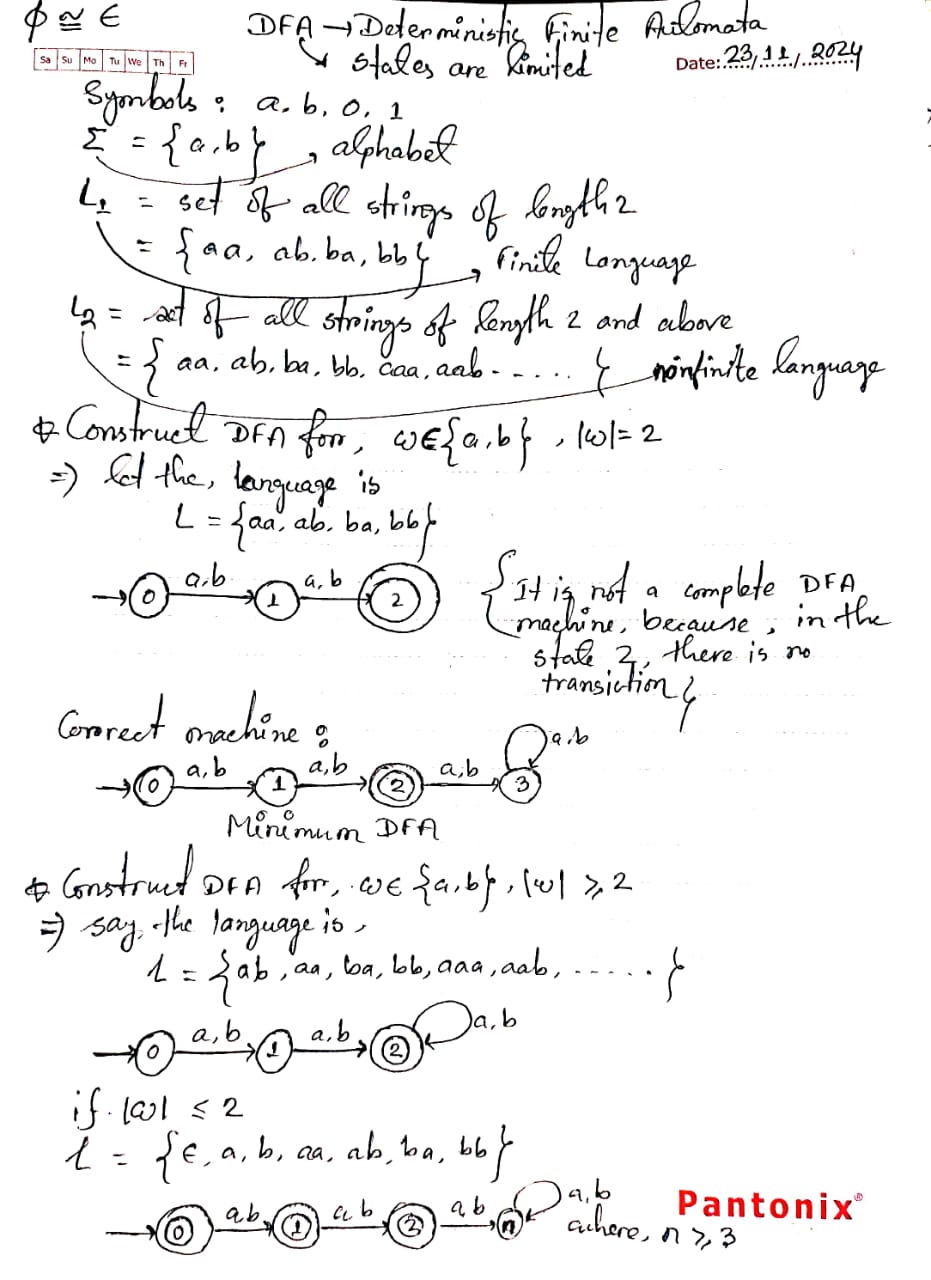 ϕ ≅ ϵ
DFA → Deterministic Finite Automata
↳ states are limited
Sa Su Mo Tu We Th Fr
Date: 23/11/2024
Symbols : a, b, 0, 1
Σ = {a,b} → alphabet
L1 = set of all strings of length 2
= {aa, ab, ba, bb} → Finite Language
L2 = set of all strings of length 2 and above
= { aa, ab, ba, bb, aaa, aab - - .... } nonfinite language
Construct DFA for, ω∈{a,b} , |ω|= 2
⇒ let the, language is
L = {aa, ab, ba, bb}
→ 0 a,b 1 a,b 2
{It is not a complete DFA
machine, because, in the
state 2, there is no
transiction}
Correct machine :
a,b
→ 0 a,b 1 a,b 2 a,b 3
Minimum DFA
Construct DFA for, ω∈ {a,b}, |ω| ≥ 2
⇒ say, the language is,
L = {ab, aa, ba, bb, aaa, aab, ...... }
→ 0 a,b 1 a,b 2 a,b
if |ω| ≤ 2
L = {ϵ, a, b, aa, ab, ba, bb}
→ 0 a,b 1 a b 2 a b n a,b
where, n ≥ 3
Pantonix®